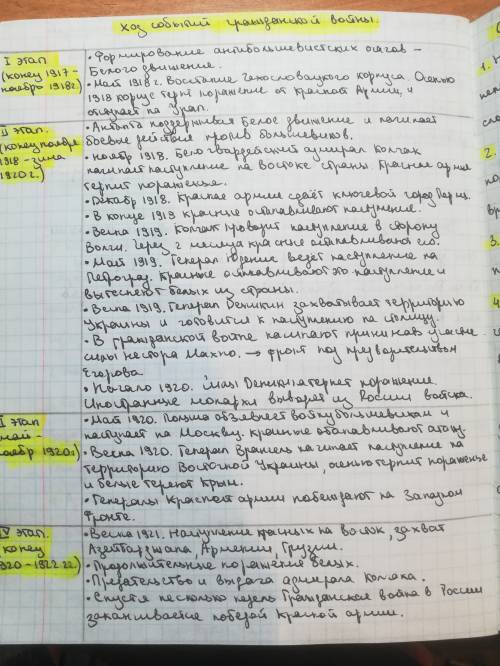 Ход событий гражданской войны.
I этап
(конец 1917 -
ноябрь 1918г.)
• Формирование антибольшевистских очагов -
Белого движения.
• Май 1918 г. Восстание Чехословацкого корпуса. Осенью
1918 корпус терпит поражение от Красной Армии, и
отступает на Урал.
II этап.
(конец ноября
1918 - зима
1920г.)
• Антанта поддерживает Белое движение и начинает
боевые действия против большевиков.
• ноябрь 1918. Белогвардейский адмирал Колчак
начинает наступление на востоке страны. Красная армия
терпит поражение.
• Декабрь 1918. Красная армия сдаёт ключевой город Пермь.
• В конце 1919 красные останавливают наступление.
• Весна 1919. Колчак проводит наступление в сторону
Волги. Через 2 месяца красные останавливают его.
• Май 1919. Генерал Юденич ведёт наступление на
Петроград. Красные останавливают это наступление и
вытесняют белых из страны.
• Весна 1919. Генерал Деникин захватывает территорию
Украины и готовится к наступлению на столицу.
• В гражданской войне начинают принимать участие
силы Нестора Махно. → фронт под
Егорова
• Начало 1920. Силы Деникина терпят поражение.
Иностранные монархи выводят из России войска.
I этап
май -
ноябрь 1920г.)
• Май 1920. Польша объявляет войну большевикам и
наступает на Москву. Красные отбивают атаку.
• Весна 1920. Генерал Врангель начинает наступление на
территорию Восточной Украины, осенью терпит поражение
и белые теряют Крым.
• Генералы Красной армии побеждают на Западном
фронте.
IV этап.
(конец
1920 - 1922 гг.)
• Весна 1921. Наступление красных на восток, захват
Азербайджана, Армении, Грузии.
• Продолжительные поражение белых.
• Предательство и выдача адмирала Колчака.
• Спустя несколько недель Гражданская война в России
заканчивается победой Красной армии.
1.
2.
3.
4.